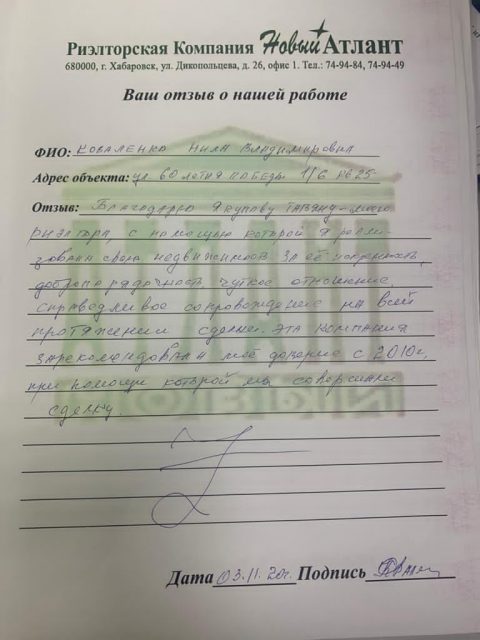 Риэлторская Компания Новый Атлант
680000, г. Хабаровск, ул. Дикопольцева, д. 26, офис 1. Тел.: 74-94-84, 74-94-49
Ваш отзыв о нашей работе
ФИО: Коваленко Нила Владимировна
Адрес объекта: ул 60 летия победы 1/6 кв 25
Отзыв: Благодарю Якупову Татьяну - моего
риэлтора, с помощью которой я реали-
зовала свою недвижимость за её
добропорядочность, чуткое отношение,
справедливое сопровождение на всей
протяжении сделки. Эта компания
зарекомендовала моё доверие с 2010г,
при помощи которой мы совершали
сделку.
Дата 03.11.20г. Подпись